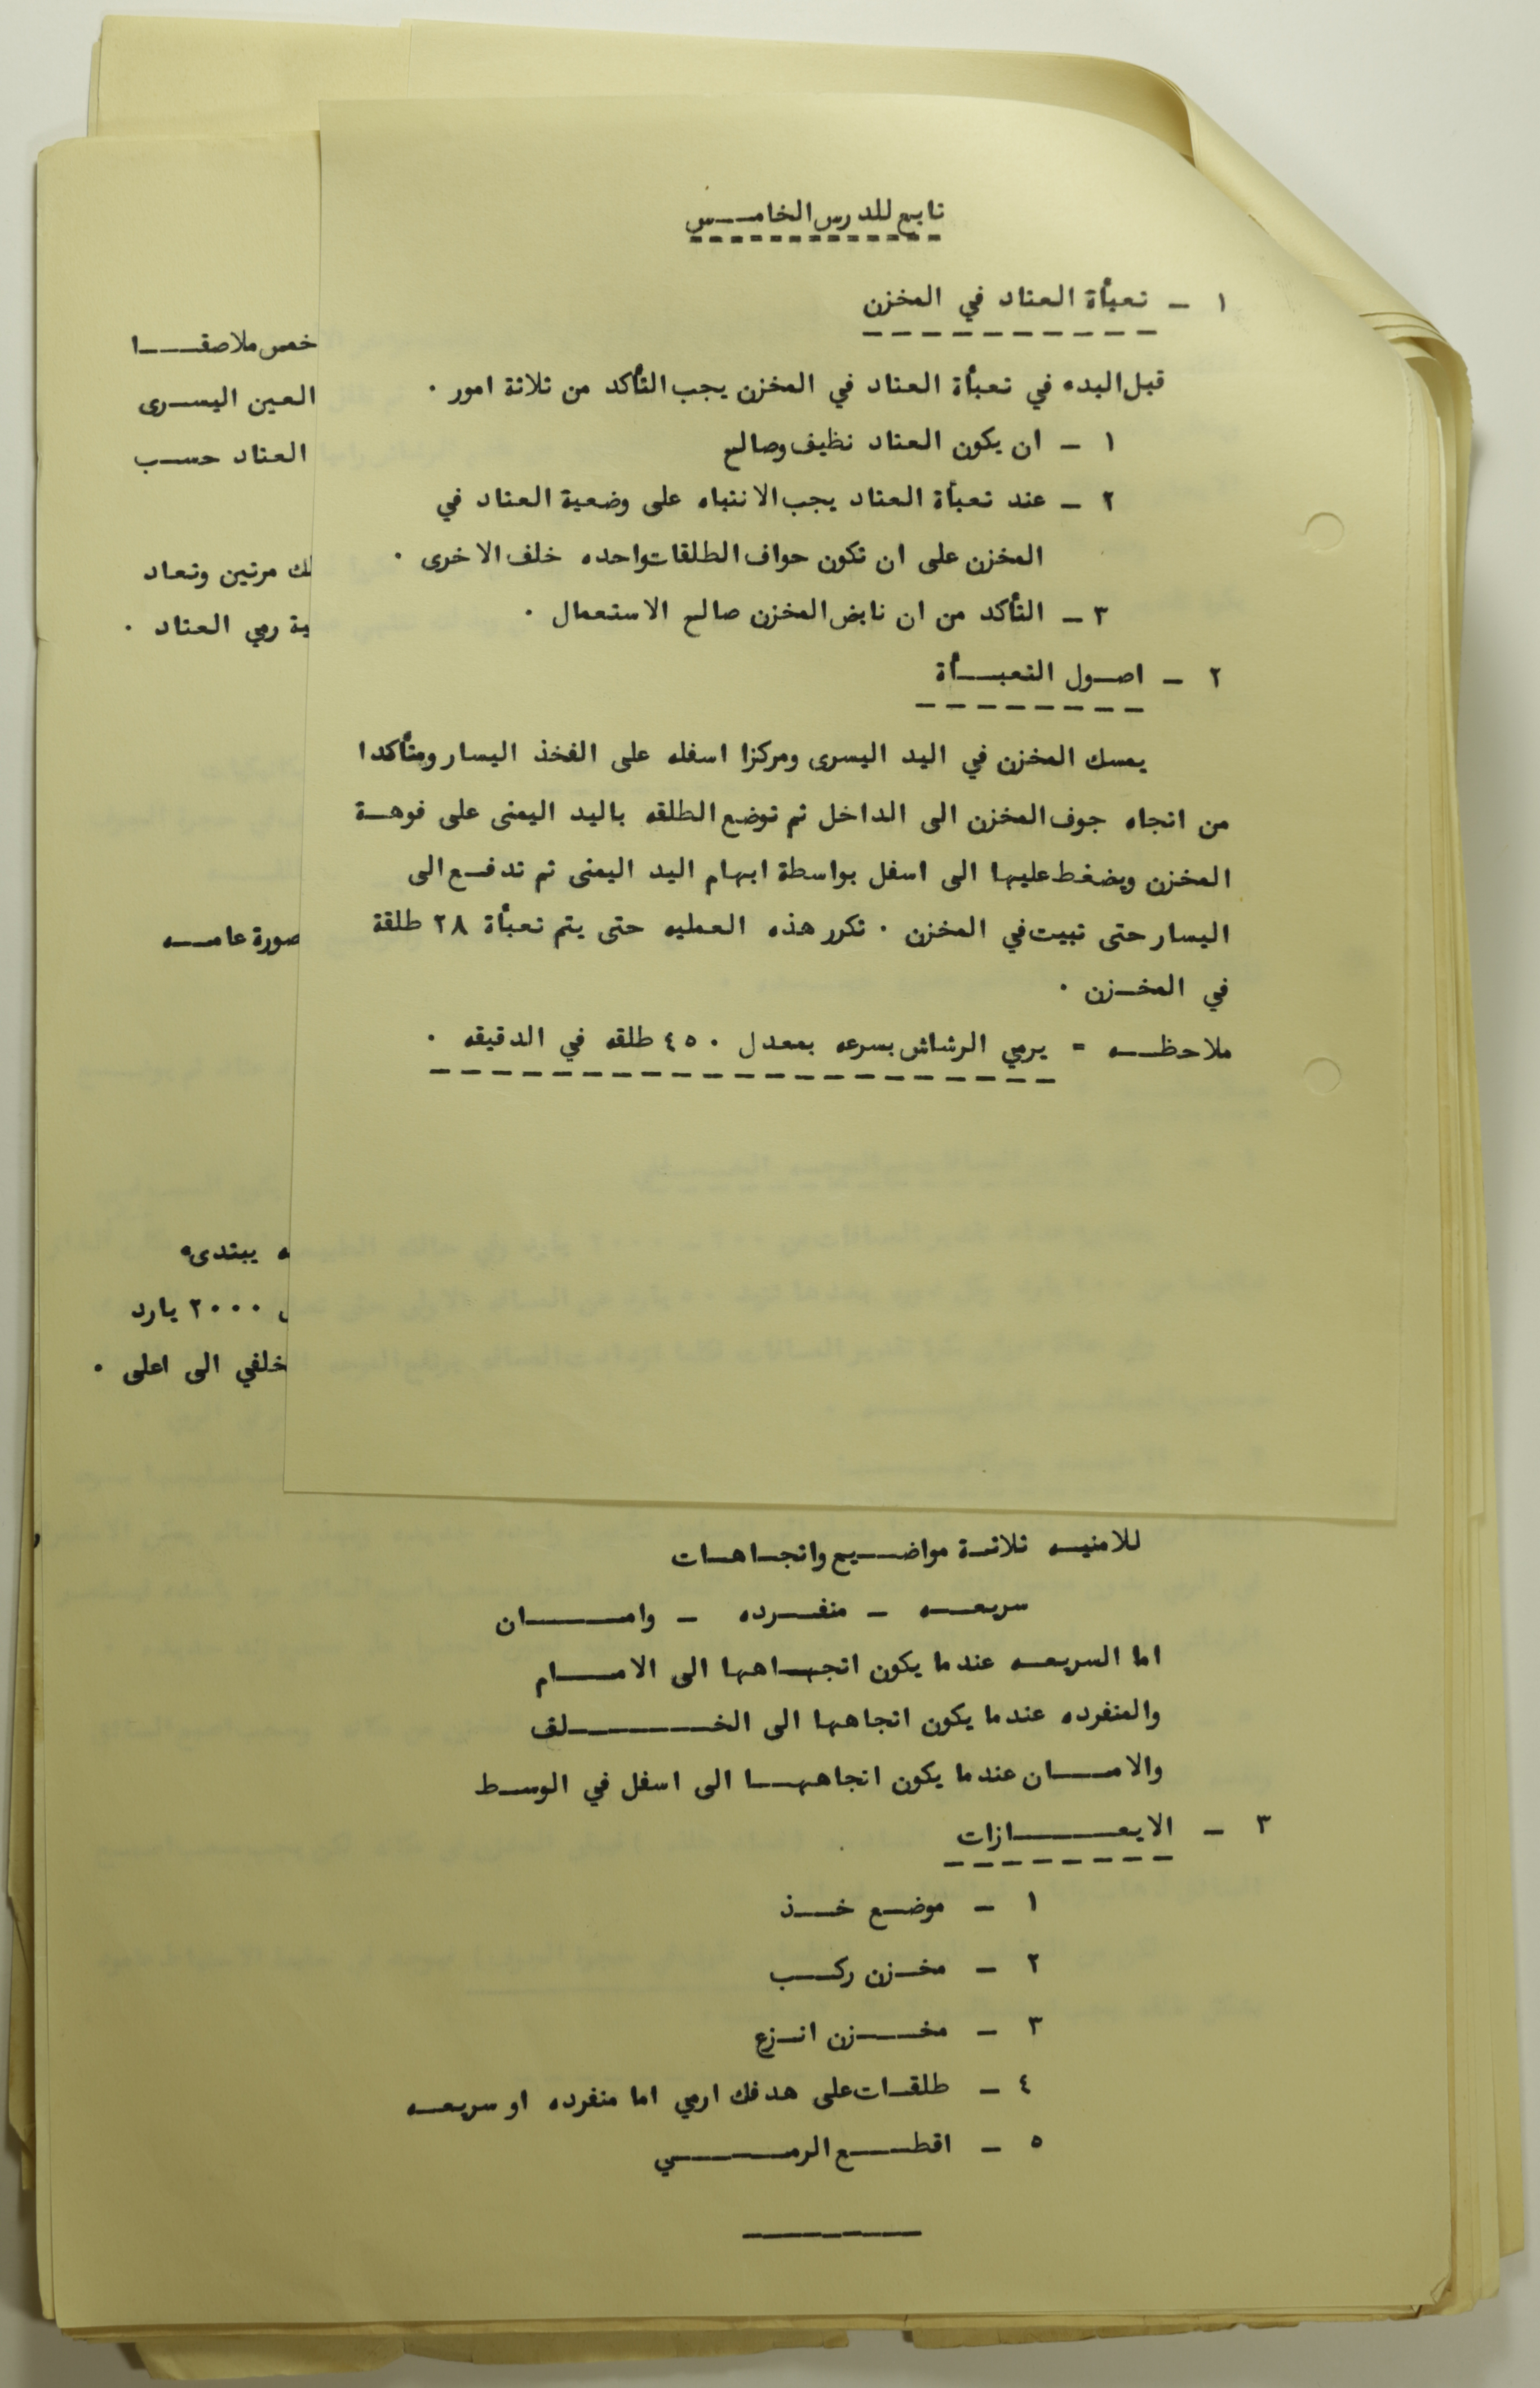 تابع للدرس الخامـس
١ - تعبأة العتاد في المخزن
قبل البدء في تعبأة العتاد في المخزن يجب التأكد من ثلاثة امور .
١ - ان يكون العتاد نظيف وصالح
٢ - عند تعبأة العتاد يجب الانتباه على وضعية العتاد في
المخزن على ان تكون حواف الطلقات واحده خلف الاخرى .
٣ - التأكد من ان نابض المخزن صالح الاستعمال .
٢ - اصـول التعبــأة
يمسك المخزن في اليد اليسرى ومركزا اسفله على الفخذ اليسار ومتأكدا
من اتجاه جوف المخزن الى الداخل ثم توضع الطلقه باليد اليمنى على فوهـة
المخزن ويضغط عليها الى اسفل بواسطة ابهام اليد اليمنى ثم تدفـع الى
اليسار حتى تبيت في المخزن . تكرر هذه العمليه حتى يتم تعبأة ٢٨ طلقة
في المخـزن .
ملاحظــه = يرمي الرشاش بسرعه بمعدل ٤٥٠ طلقه في الدقيقه .
خمص ملاصقــا
العين اليسـرى
العتاد حسـب
لك مرتين وتعاد
ية رمي العتاد .
صورة عامــه
ه يبتدىء
٢٠٠٠ يارد
خلفي الى اعلى .
للامنيـه ثلاثـة مواضـيع واتجـاهـات
سريعــه - منفــرده - وامــــان
اما السريعـه عندما يكون اتجـاهها الى الامــام
والمنفرده عندما يكون اتجاهها الى الخـــــــلف
والامــان عندما يكون اتجاههــا الى اسفل في الوسـط
٣ - الايعـــــازات
١ - موضـع خــذ
٢ - مخـزن ركــب
٣ - مخــزن انـزع
٤ - طلقـات على هدفك ارمي اما منفرده او سريعــه
٥ - اقطــع الرمــــي